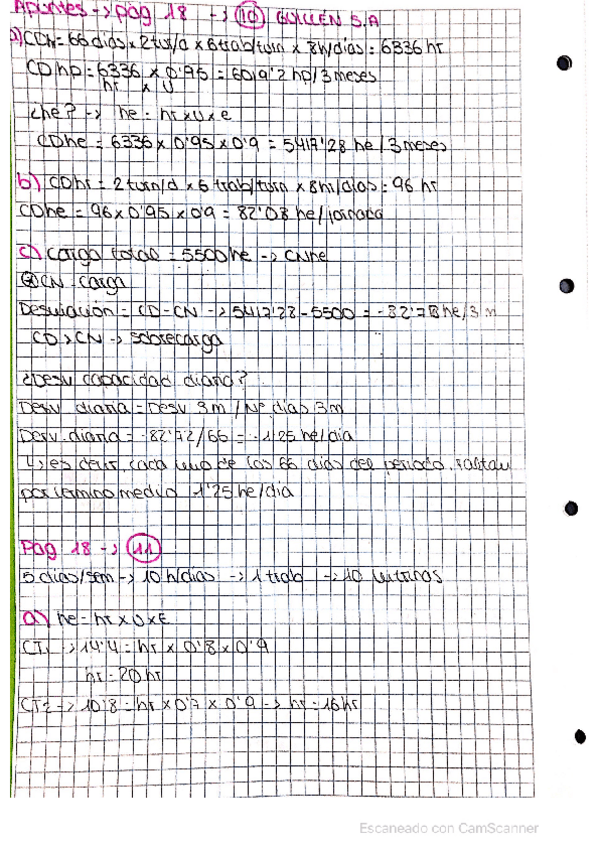 Apuntes → pag 18 → (10) GUILLÉN S.A
a) CDhr = 66 días x 2 tur/d x 6 trab/turn x 8h/días = 6336 hr
CDhp = 6336 x 0'95 = 6019'2 hp/3 meses
hr x U
¿he? → he = hr x U x e
CDhe = 6336 x 0'95 x 0'9 = 5417'28 he / 3 meses
b) CDhr = 2 turn/d x 6 trab/turn x 8hr/días = 96 hr
CDhe = 96 x 0'95 x 0'9 = 82'08 he/jornada
c) Carga total = 5500 he → CNhe
CN - Carga
Desviación = CD - CN → 5417'28 - 5500 = -82'78 he/3 m
CD > CN → sobrecarga
¿Desv capacidad diaria?
Desv. diaria = Desv 3m / Nº días 3m
Desv. diaria = -82'72/66 = -1'25 he/día
↳ es decir, cada uno de los 66 días del periodo, faltan
por término medio 1'25 he/día
Pag 18 → (11)
5 días/sem → 10 h/días → 1 trab → 10 vitrinas
a) he = hr x U x E
CT1 → 14'4 = hr x 0'8 x 0'9
hr = 20 hr
CT2 → 10'8 = hr x 0'7 x 0'9 → hr = 16 hr
Escaneado con CamScanner